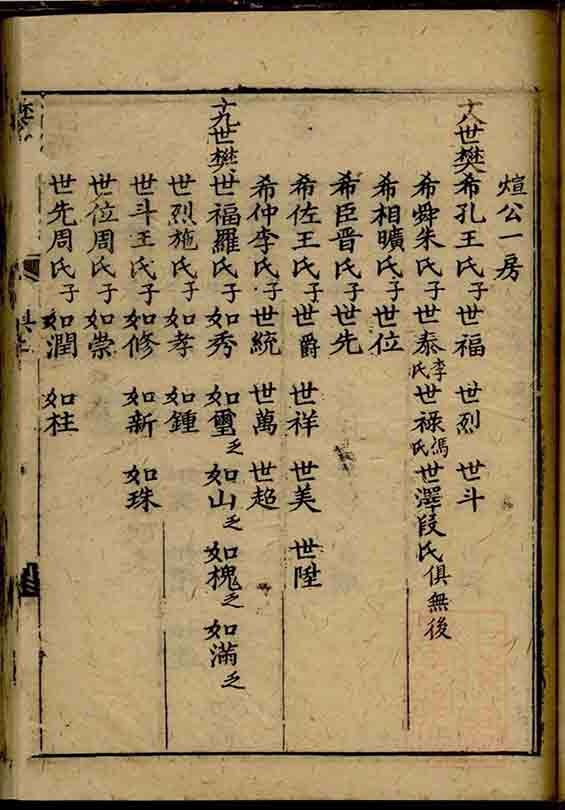 煊公一房
十八世樊希孔王氏子世福 世烈 世斗
希舜朱氏子世泰李氏世禄馮氏世澤段氏俱無後
希相曠氏子世位
希臣晋氏子世先
希佐王氏子世爵 世祥 世美 世陞
希仲李氏子世統 世萬 世超
十九世樊世福羅氏子如秀 如璽乏 如山乏 如槐乏 如滿乏
世烈施氏子如孝 如鍾
世斗王氏子如修 如新 如珠
世位周氏子如崇
世先周氏子如潤 如柱